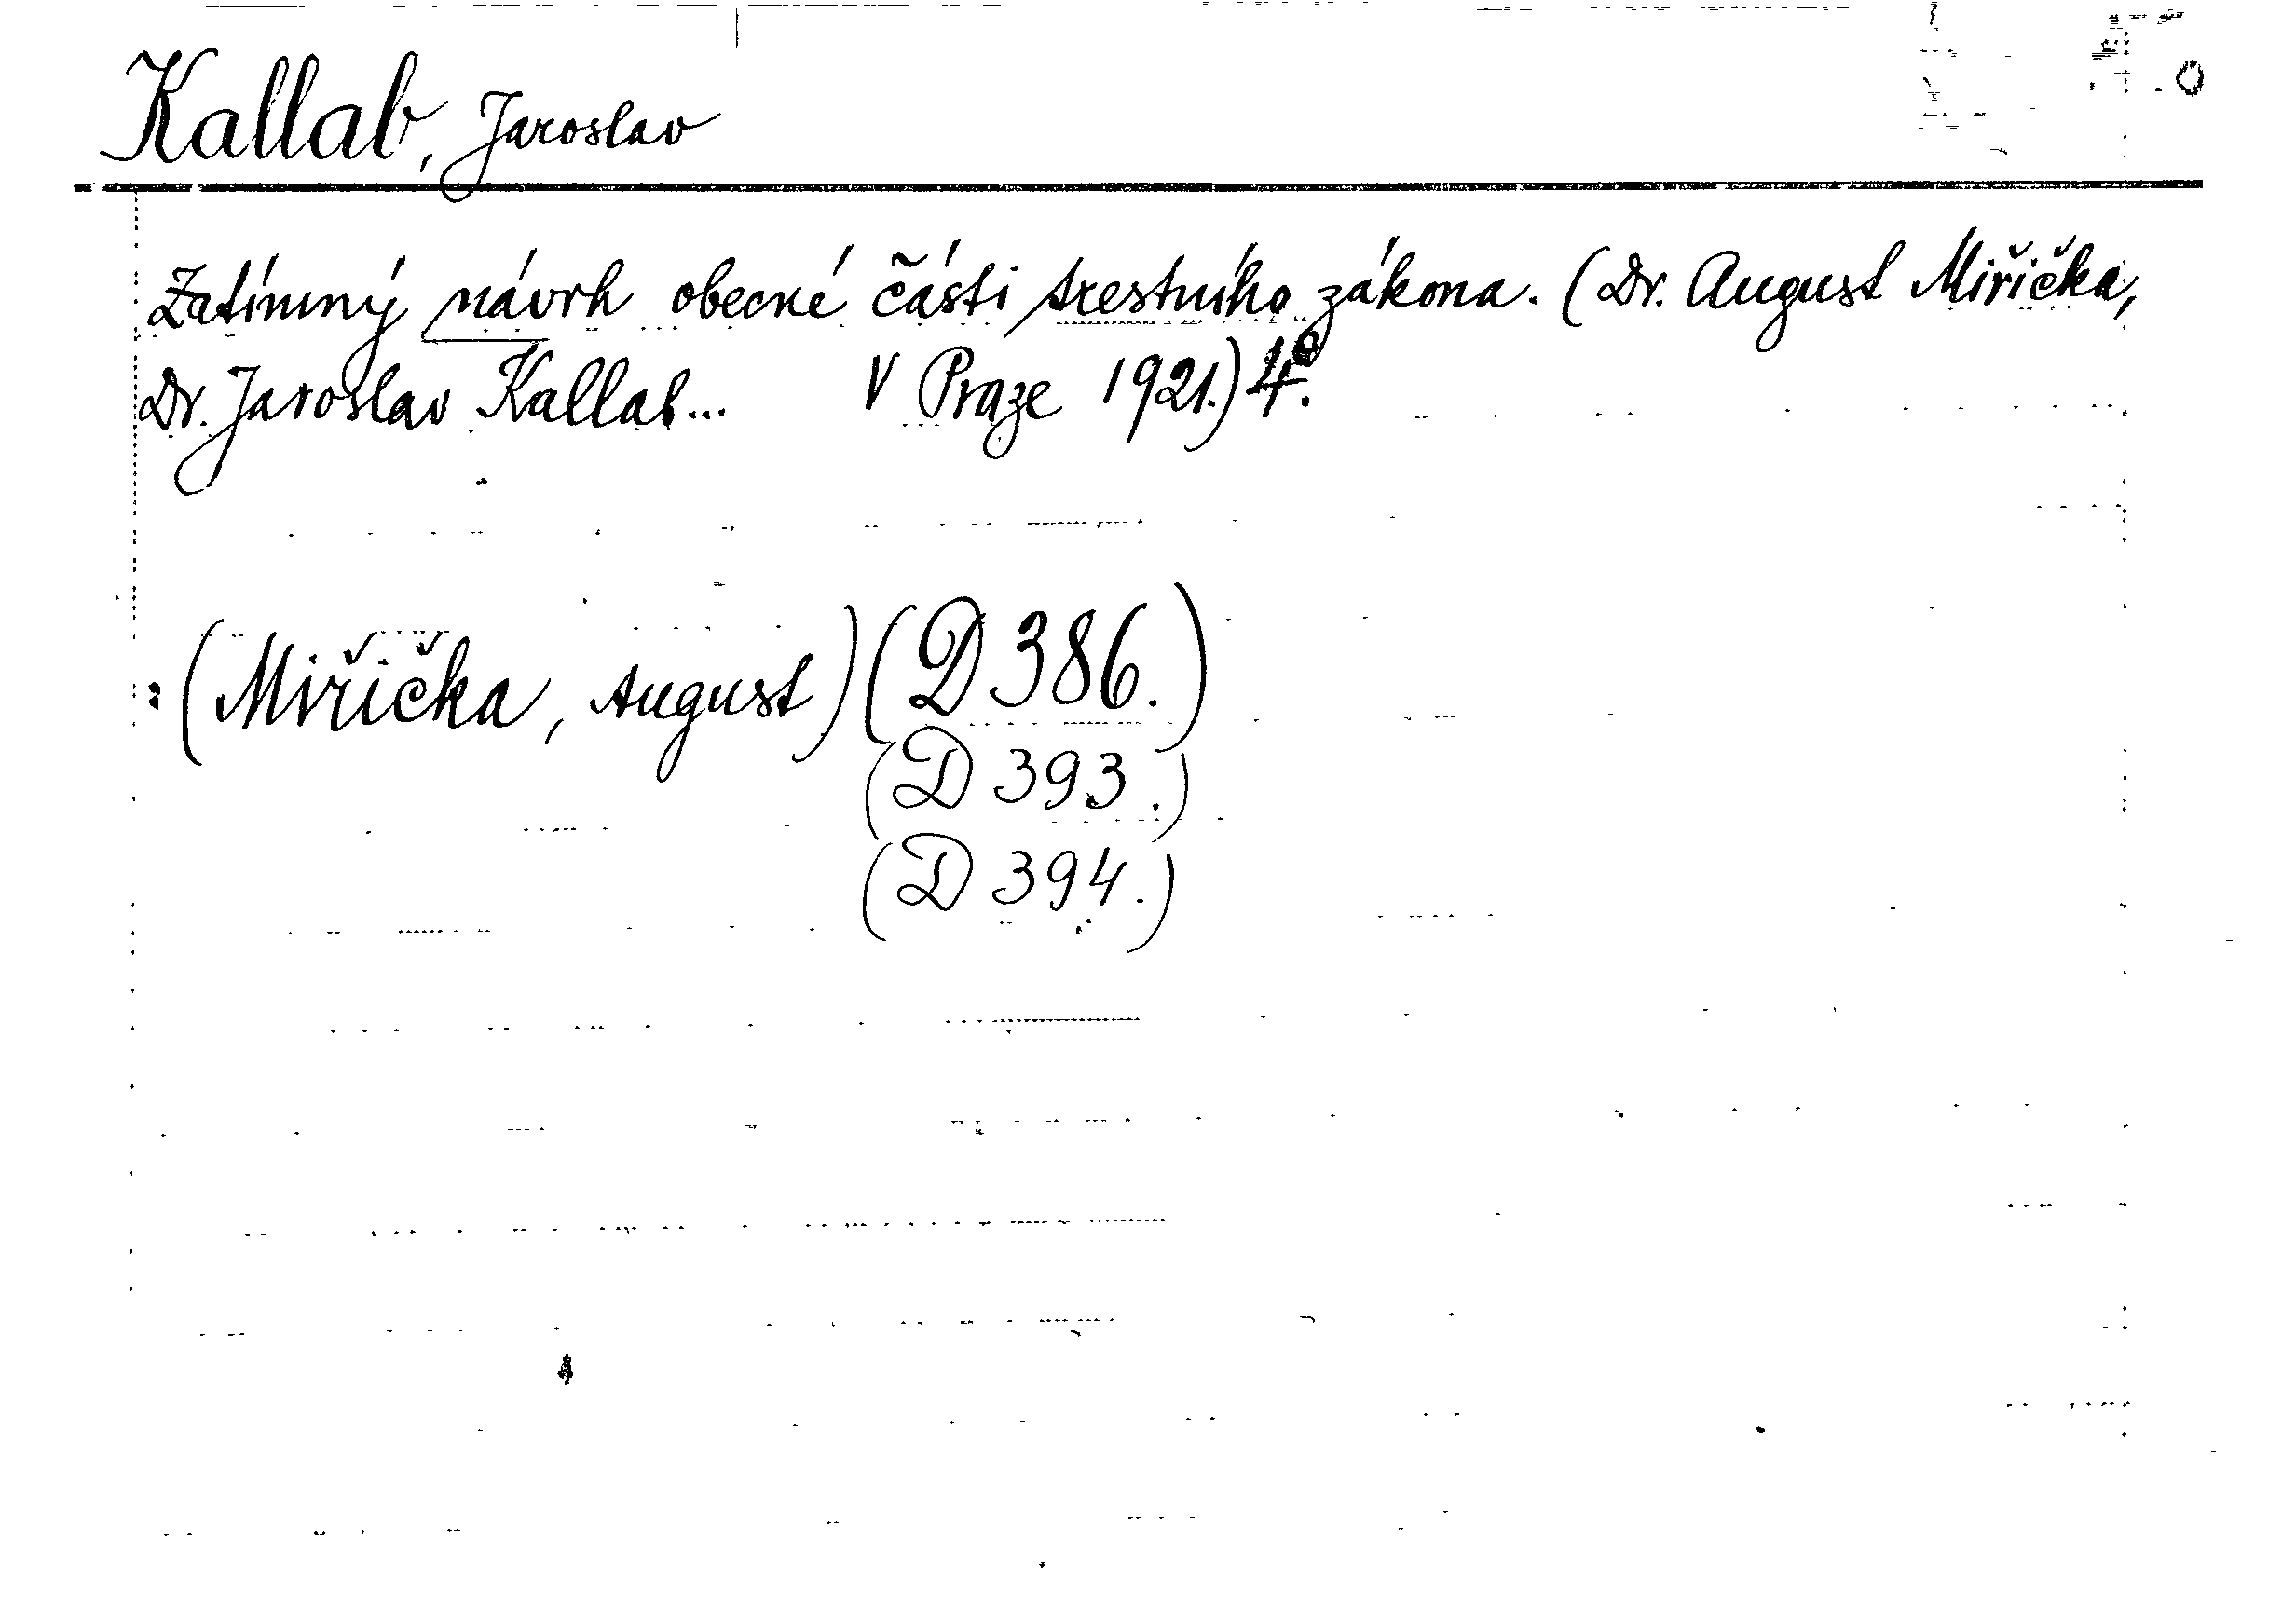 Kallab, Jaroslav
Zatímný návrh obecné části trestního zákona. (Dr. August Miřička,
Dr. Jaroslav Kallab... V Praze 1921.) 4°.
: (Miřička, August) (D 386.)
(D 393.)
(D 394.)